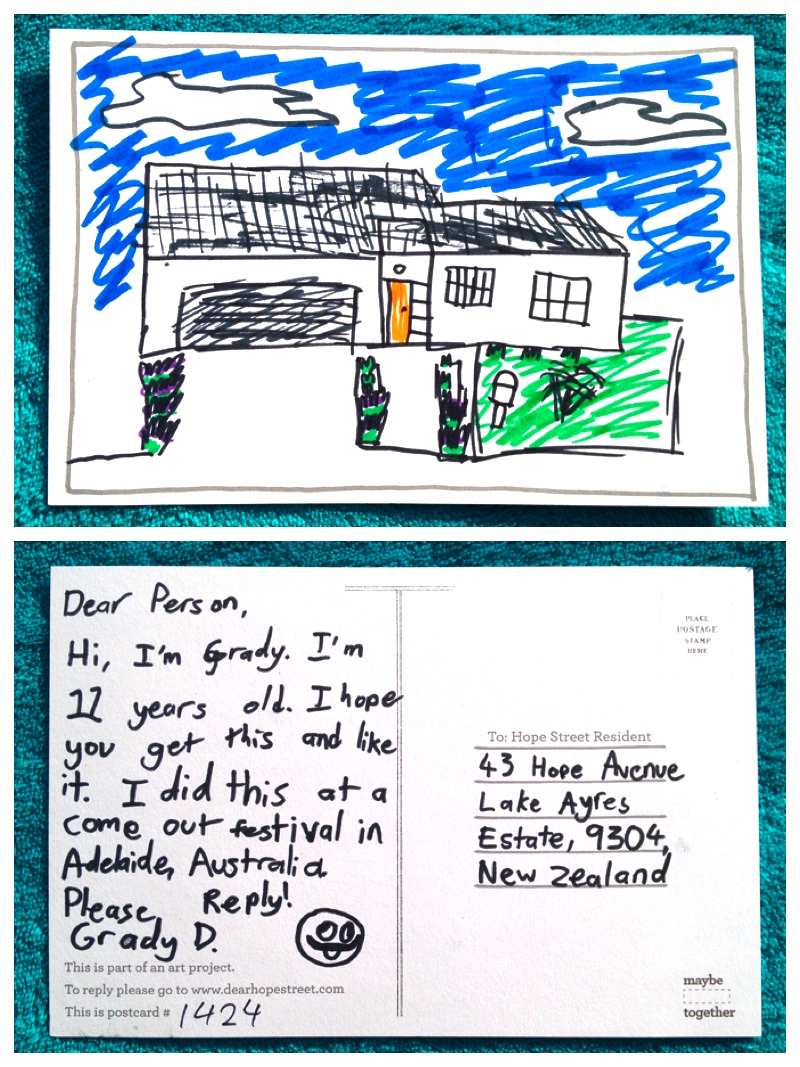 Dear Person,
Hi, I'm Grady. I'm
11 years old. I hope
you get this and like
it. I did this at a
come out festival in
Adelaide, Australia
Please Reply!
Grady D.
This is part of an art project.
To reply please go to www.dearhopestreet.com
This is postcard # 1424
PLACE
POSTAGE
STAMP
HERE
To: Hope Street Resident
43 Hope Avenue
Lake Ayres
Estate, 9304,
New Zealand
maybe
together